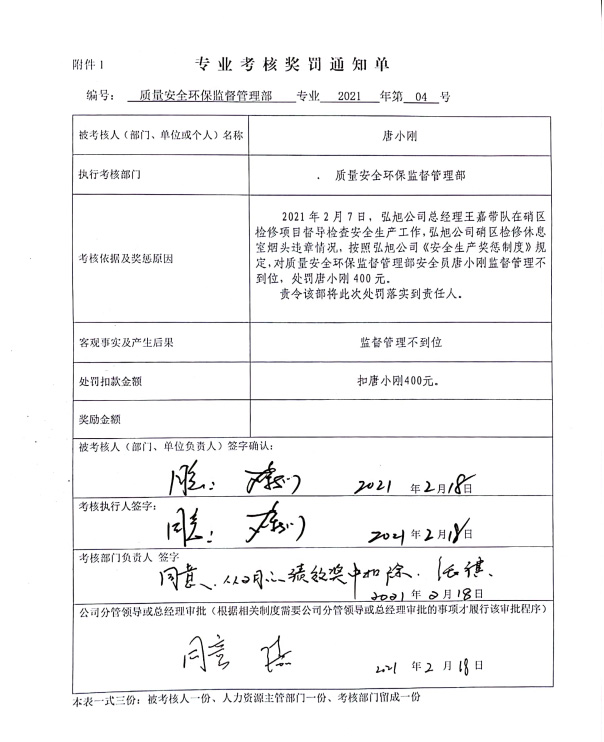 附件1
专业考核奖罚通知单
编号： 质量安全环保监督管理部 专业 2021 年第 04 号
被考核人（部门、单位或个人）名称 唐小刚
执行考核部门 质量安全环保监督管理部
考核依据及奖惩原因
2021年2月7日，弘旭公司总经理王嘉带队在硝区
检修项目督导检查安全生产工作，弘旭公司硝区检修休息
室烟头违章情况，按照弘旭公司《安全生产奖惩制度》规
定，对质量安全环保监督管理部安全员唐小刚监督管理不
到位，处罚唐小刚400元。
责令该部将此次处罚落实到责任人。
客观事实及产生后果 监督管理不到位
处罚扣款金额 扣唐小刚400元。
奖励金额
被考核人（部门、单位负责人）签字确认：
同意： 2021 年2月18日
考核执行人签字：
同意： 2021 年2月18日
考核部门负责人 签字
同意、从2月的绩效奖中扣除．
2021 年 2 月 18 日
公司分管领导或总经理审批（根据相关制度需要公司分管领导或总经理审批的事项才履行该审批程序）
同意 2021 年 2 月 18 日
本表一式三份：被考核人一份、人力资源主管部门一份、考核部门留成一份